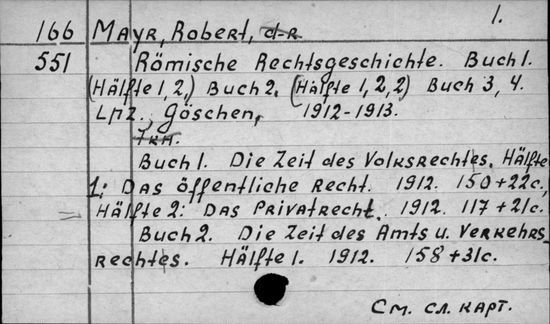 1.
166 Mayr, Robert, d-r
551 Römische Rechtsgeschichte. Buch 1.
(Hälfte 1, 2,) Buch 2. (Hälfte 1, 2, 2) Buch 3, 4.
Lpz., Göschen, 1912-1913.
7 кн.
Buch 1. Die Zeit des Volksrechtes. Hälfte
1: Das öffentliche Recht. 1912. 150+22c.
Hälfte 2: Das Privatrecht. 1912. 117+21c.
Buch 2. Die Zeit des Amts u. Verkehrs-
rechtes. Hälfte 1. 1912. 158+31c.
См. сл. карт.